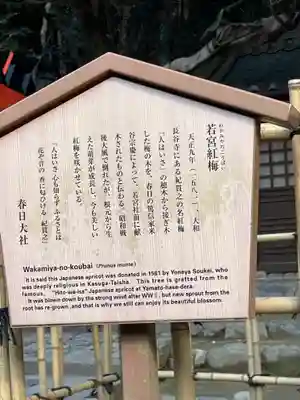 わかみやのこうばい
若宮紅梅
天正九年(一五八一)、大和
長谷寺にある紀貫之の名紅梅
「人はいさ」の穂木から接ぎ木
した梅の木を、春日の篤信家米
谷宗慶によって、若宮社前に献
木されたものと伝わる。昭和戦
後大風で倒れたが、根元から生
えた萌芽が成長し、今も美しい
紅梅を咲かせている。
「人はいさ 心も知らず ふるさとは
花ぞ昔の 香に匂ひける 紀貫之」
春日大社
Wakamiya-no-koubai (Prunus mume)
It is said this Japanese apricot was donated in 1581 by Yoneya Soukei, who
was deeply religious in Kasuga-Taisha. This tree is grafted from the
famous, "Hito-wa-isa" Japanese apricot at Yamato-hase-dera.
It was blown down by the strong wind after WWⅡ, but new sprout from the
root has re-grown, and that is why we still can enjoy its beautiful blossom.